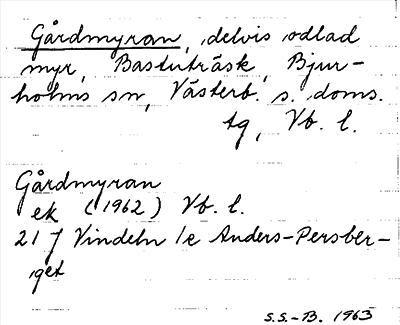 Gårdmyran, delvis odlad
myr, Bastuträsk, Bjur-
holms sn, Västerb. s. doms.
tg, Vb. l.
Gårdmyran
ek (1962) Vb. l.
21 J Vindeln 1e Anders-Persber-
get
S.S.-B. 1963